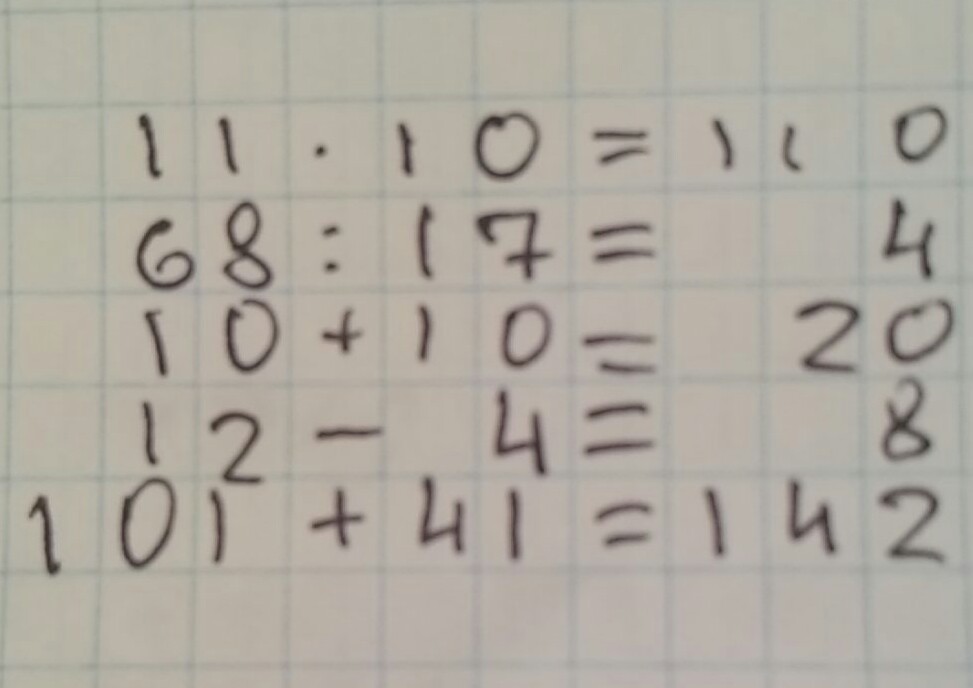 11 · 10 = 110
68 : 17 = 4
10 + 10 = 20
12 - 4 = 8
101 + 41 = 142